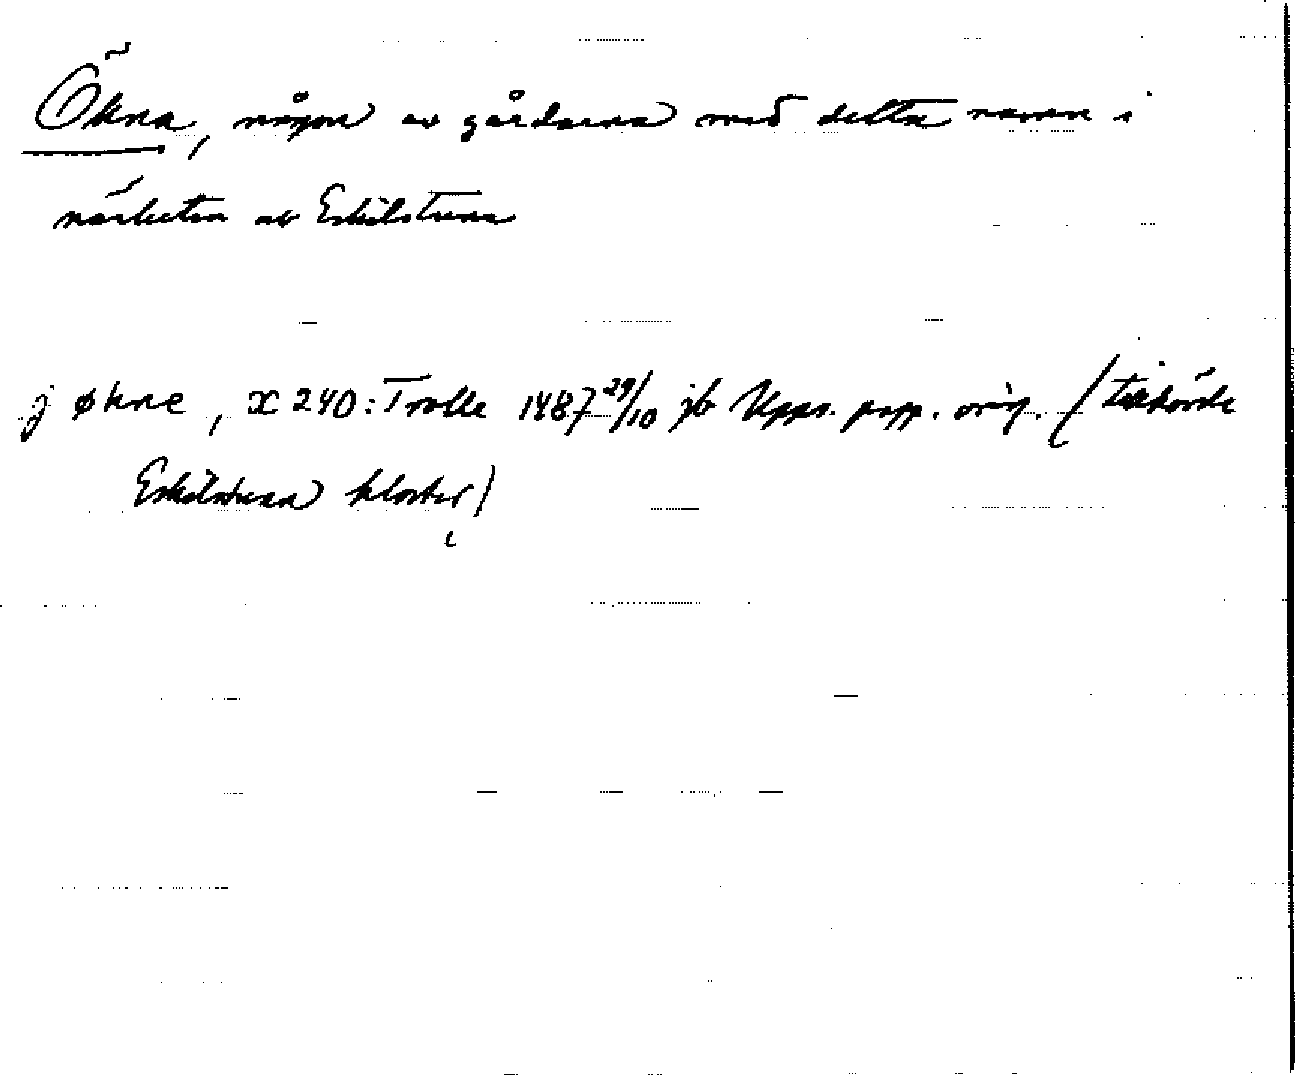 Ökna, någon av gårdarna med detta namn i
närheten av Eskilstuna
j økne, X 240: Trolle 1487 29/10 jb Upps. papp. orig. (tillhörde
Eskilstuna kloster)